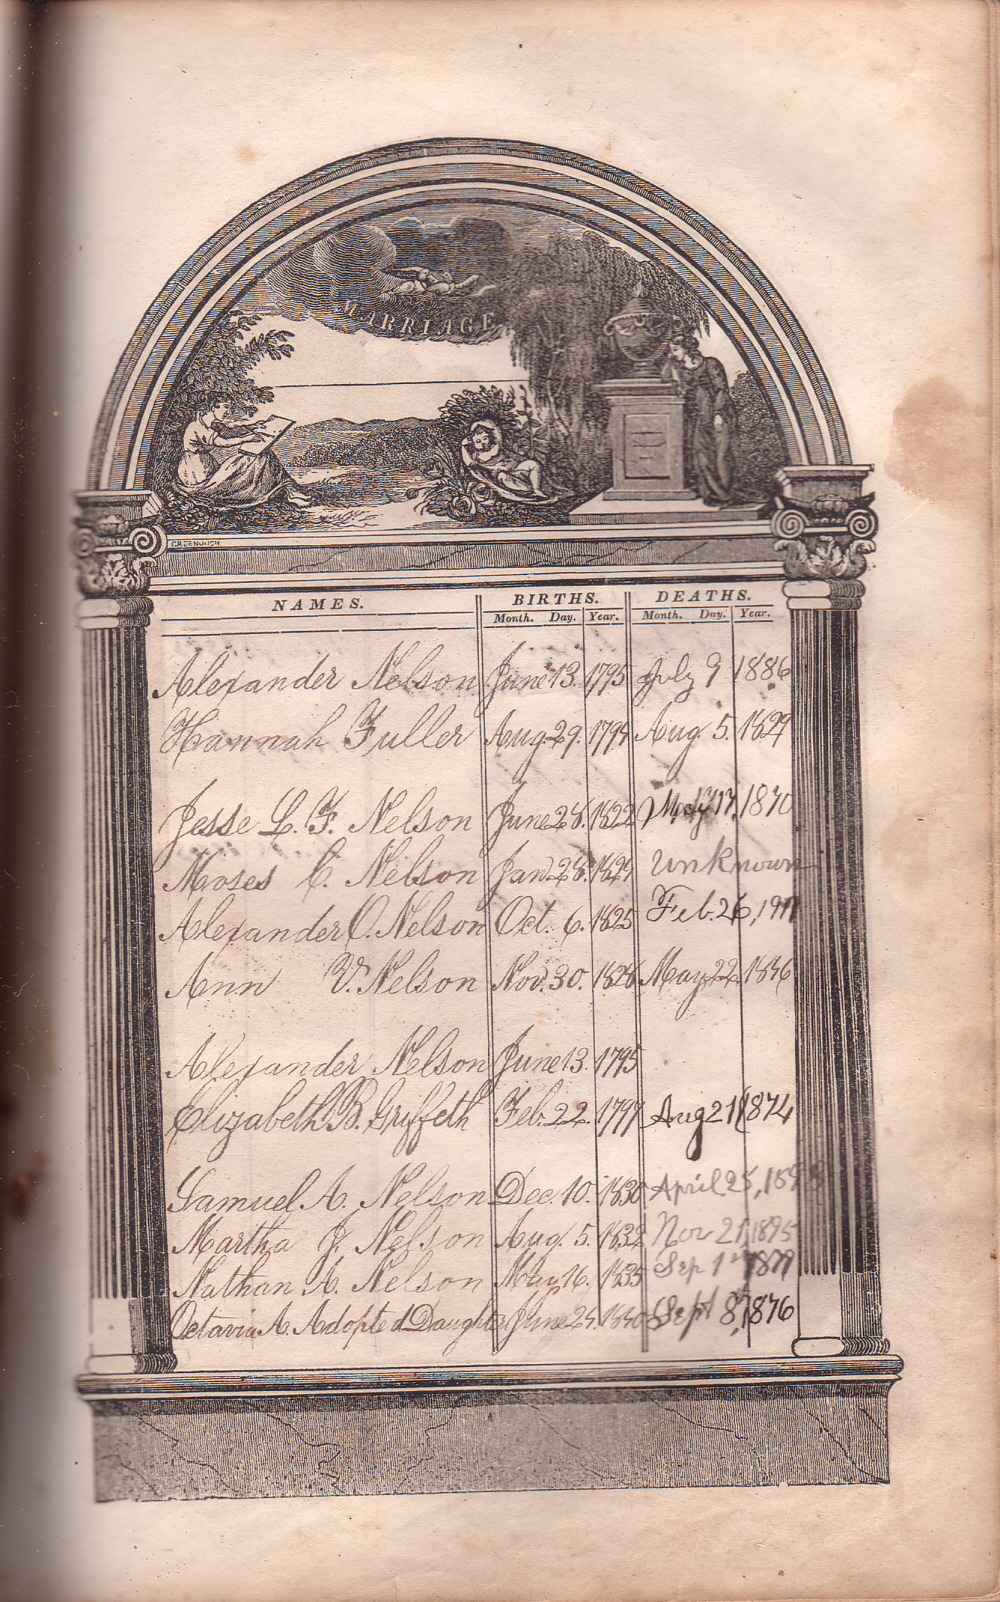 MARRIAGE
GREENWICH.
NAMES. BIRTHS. DEATHS.
Month. Day. Year. Month. Day. Year.
Alexander Nelson June 13. 1795 July 9 1886
Hannah Fuller Aug. 29. 1794 Aug. 5. 1829
Jesse L. F. Nelson June 28. 1822 May 17, 1870
Moses C. Nelson Jan. 28. 1824 unknown
Alexander O. Nelson Oct. 6. 1825 Feb. 26, 
Ann V. Nelson Nov. 30. 1828 May 22. 1846
Alexander Nelson June 13. 1795
Elizabeth B. Griffeth Feb. 22. 1797 Aug 21 1874
Samuel A. Nelson Dec. 10. 1830 April 25,
Martha J. Nelson Aug. 5. 1832 Nov 21, 1895
Nathan A. Nelson May 16. 1835 Sep 1st
Octavia A. Adopted Daughter June 24. 1840 Sept 8, 1876